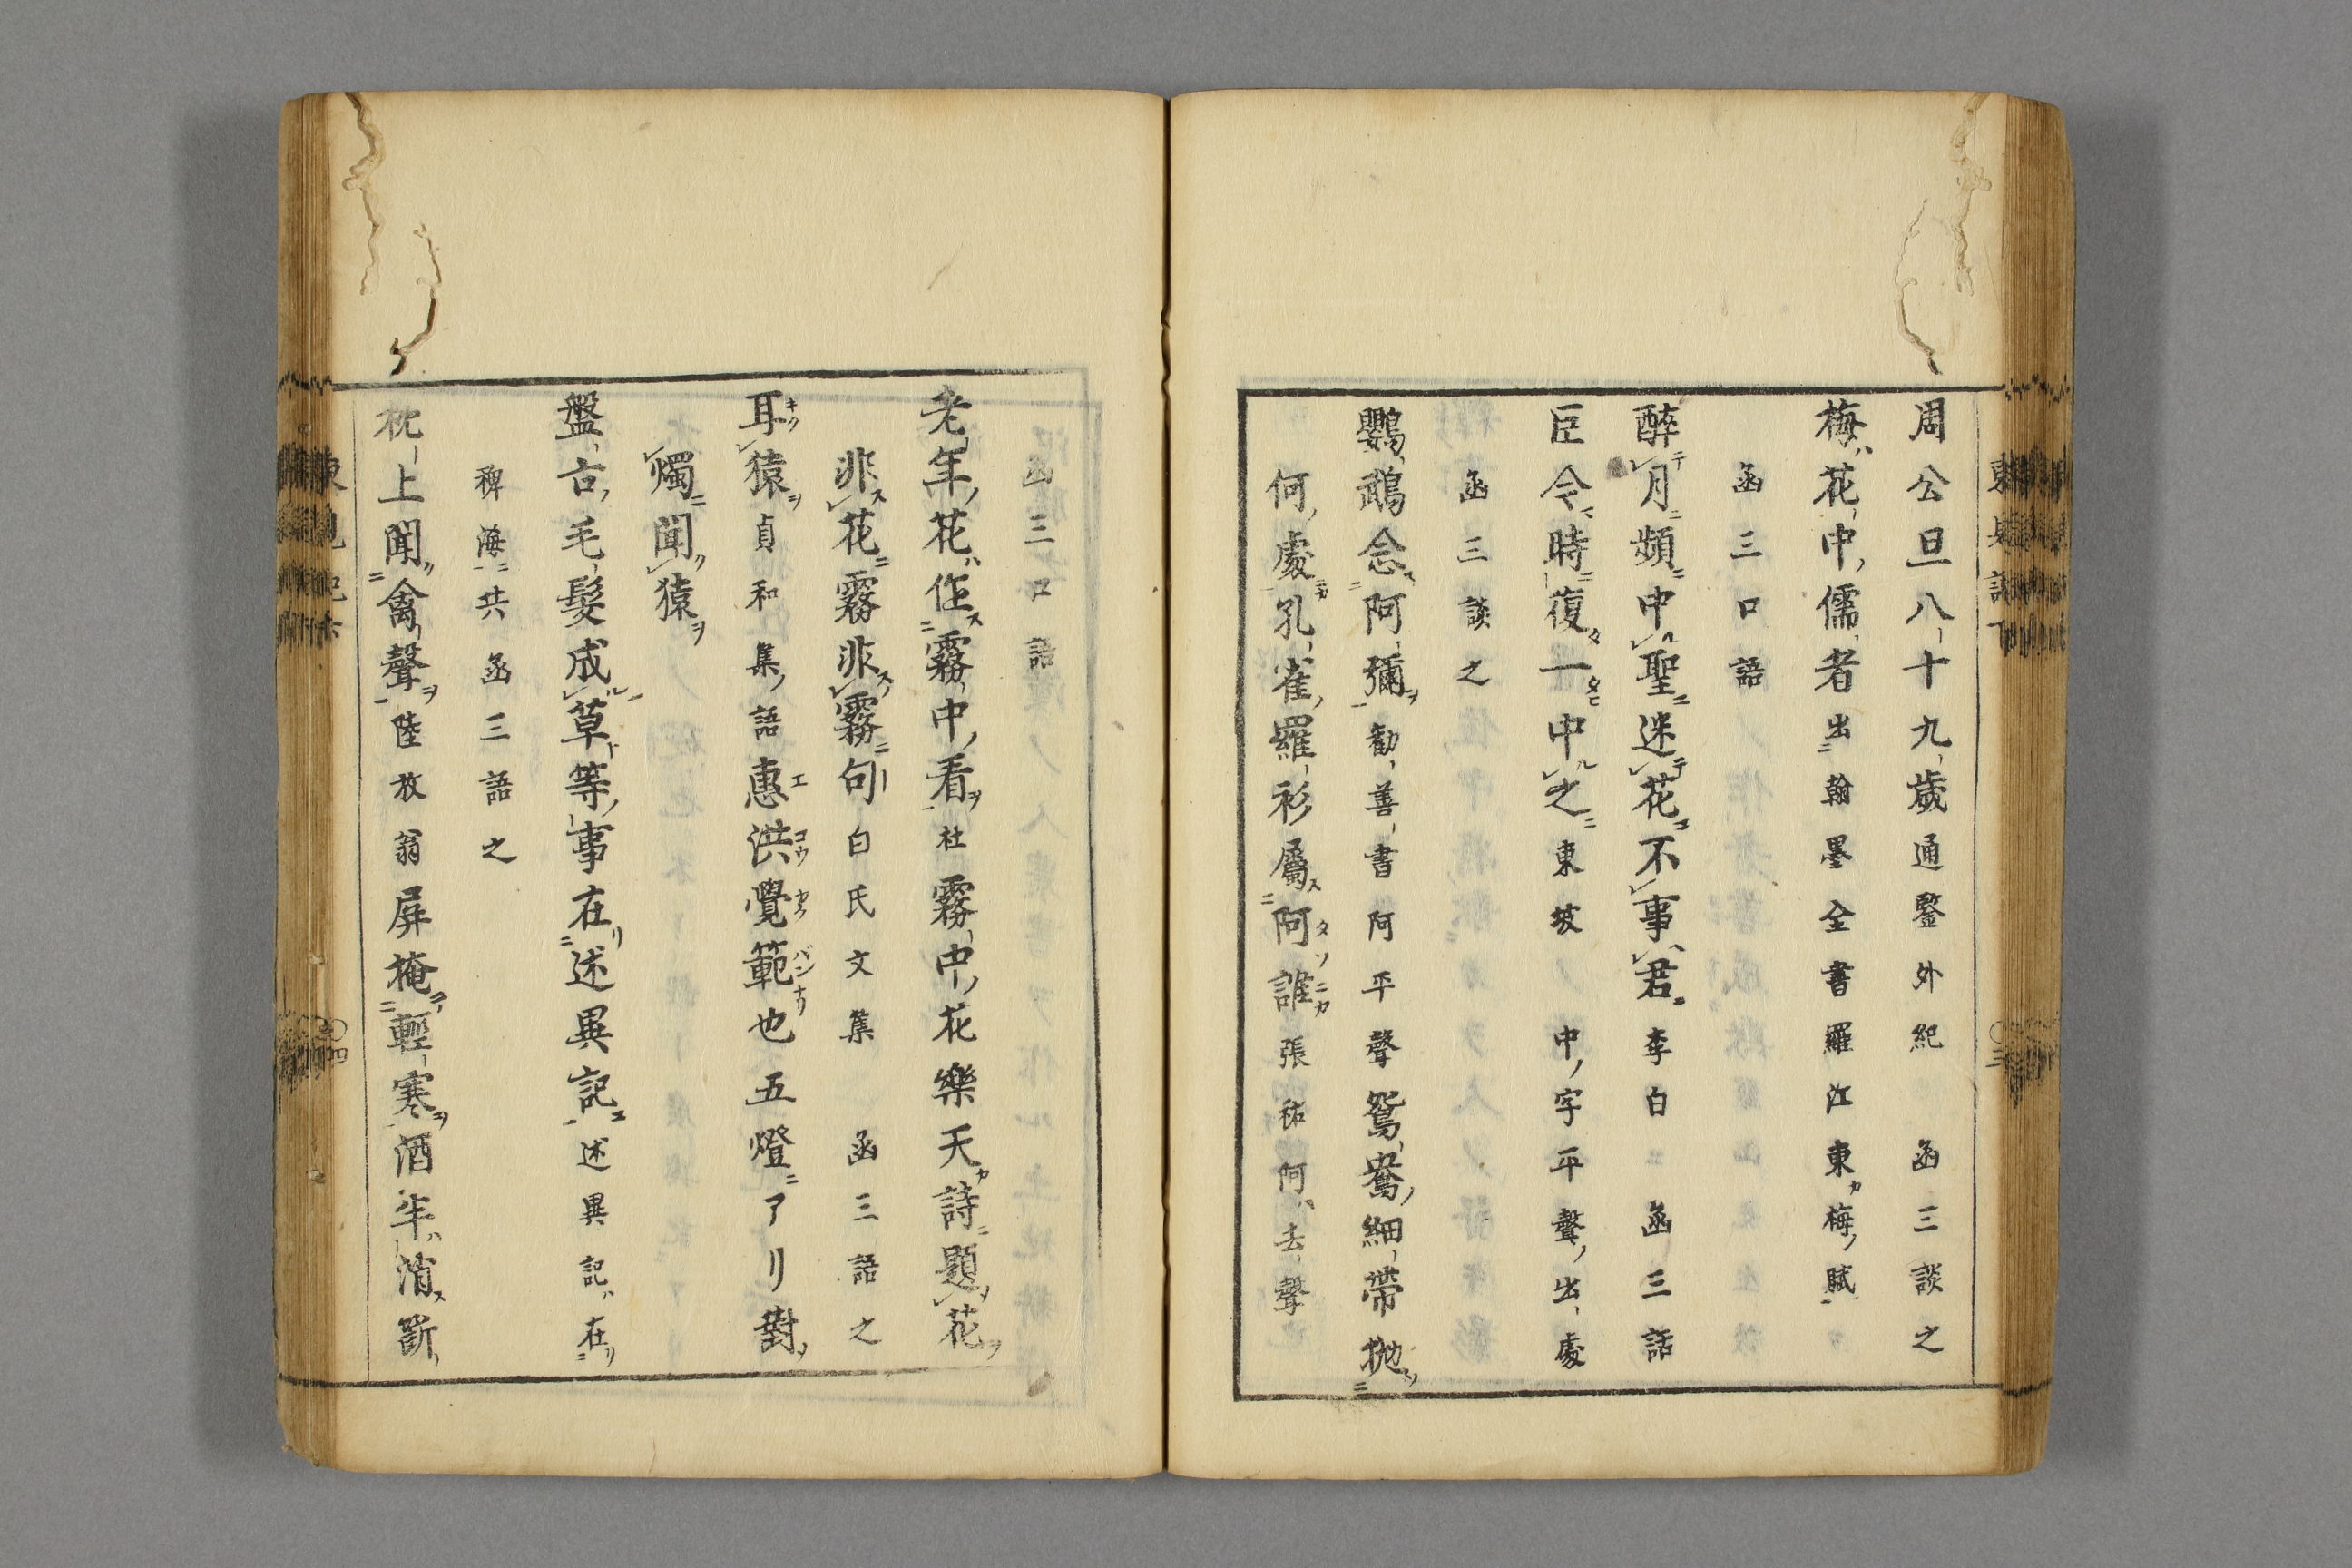 周公旦八十九歳通鑒外紀　函三談之
梅ハ花中ノ儒者出ニ翰墨全書羅江東カ梅ノ賦
函三口語
醉テ月ニ頻ニ中ル聖ニ迷テ花ニ不事ハ君ニ李白　函三話
臣今時復一中ル之ニ東坡　中ノ字平聲ノ出處
函三談之
鸚鵡念ス阿彌ヲ勧善書阿平聲鴛鴦ノ細帶抛
何ノ處ニカ孔雀ノ羅衫屬ス阿誰ニカ張祐阿ハ去聲
函三口語
老年ノ花ハ作ス霧中ノ看ヲ杜霧中ノ花樂天カ詩ニ題ヲ花ヲ
非ス花ニ霧非ス霧ニ句白氏文集　函三語之
耳キク猿ヲ貞和集ノ語惠エ洪コウ覺カク範バンナリ也五燈ニアリ對ノ
燭ニ聞ク猿ヲ
盤古ノ毛髮成ル草ト等ノ事在リ述異記ニ述異記ハ在リ
稗海ニ共函三語之
枕上聞ク禽聲ヲ陸放翁屏掩テ輕寒ヲ酒半ハ消ス斷